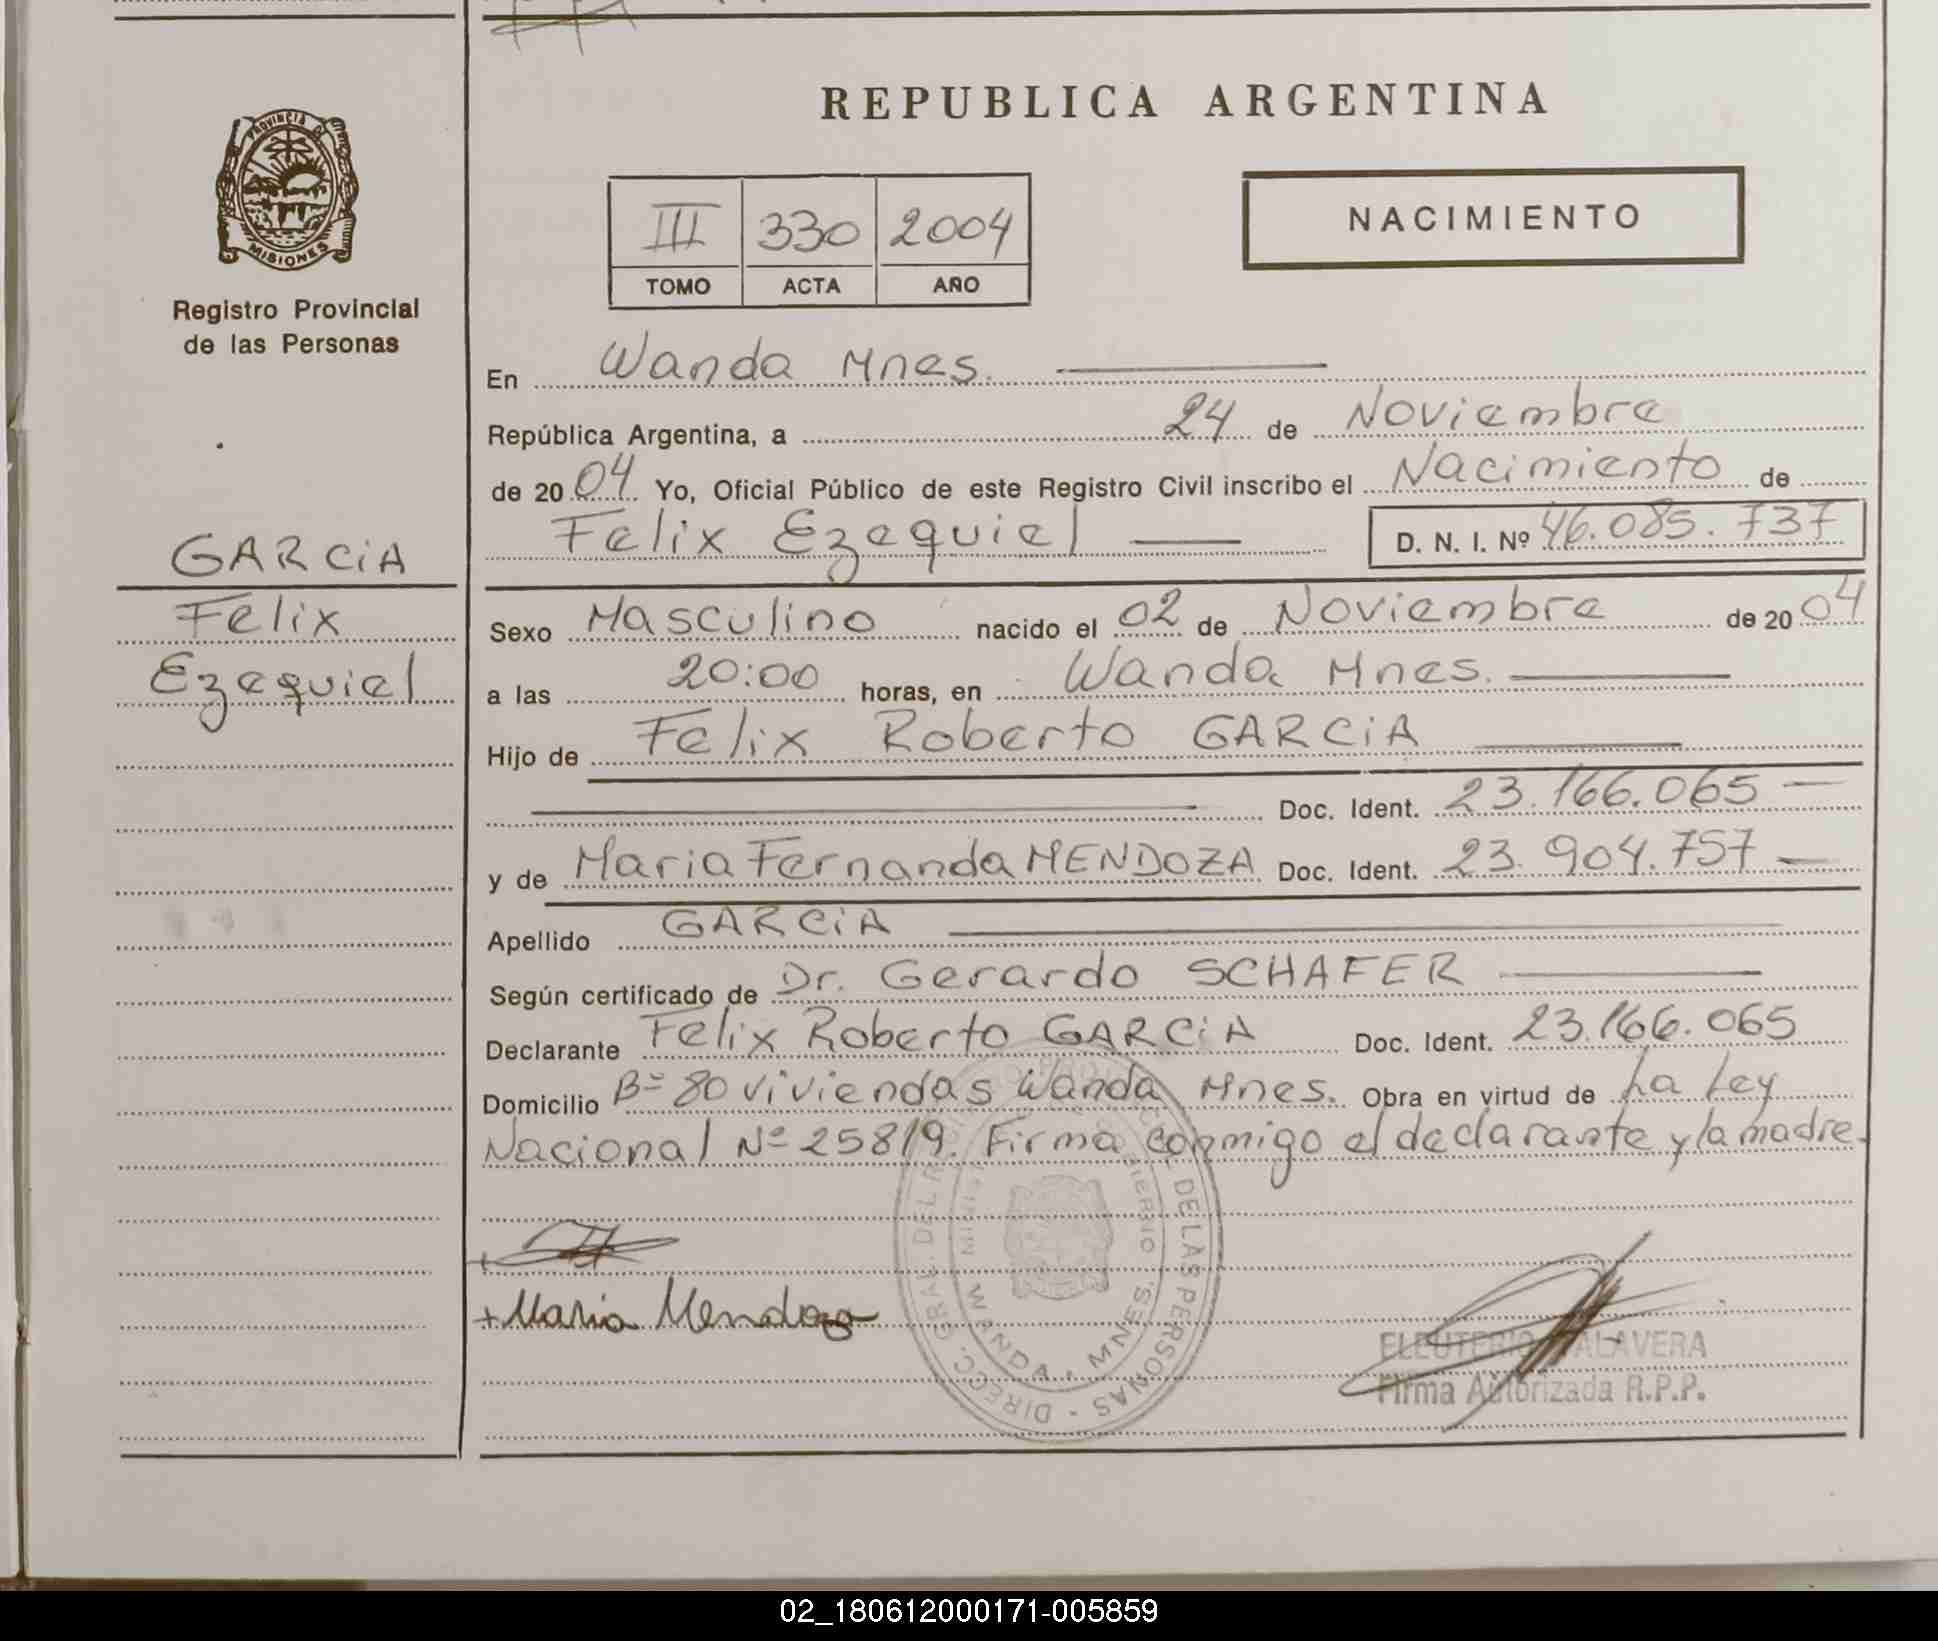 REPUBLICA ARGENTINA
PROVINCIA DE
MISIONES
Registro Provincial
de las Personas
III 330 2004
TOMO ACTA AÑO
NACIMIENTO
En Wanda Mnes.
República Argentina, a 24 de Noviembre
de 2004 Yo, Oficial Público de este Registro Civil inscribo el Nacimiento de
Felix Ezequiel D. N. I. Nº 46.085.737
GARCiA
Felix
Ezequiel
Sexo Masculino nacido el 02 de Noviembre de 2004
a las 20:00 horas, en Wanda Mnes.
Hijo de Felix Roberto GARCiA
Doc. Ident. 23.166.065
y de Maria Fernanda MENDOZA Doc. Ident. 23.904.757
Apellido GARCiA
Según certificado de Dr. Gerardo SCHAFER
Declarante Felix Roberto GARCiA Doc. Ident. 23.166.065
Domicilio Bº 80 viviendas Wanda Mnes. Obra en virtud de La Ley
Nacional Nº 25819. Firma conmigo el declarante y la madre.
+ Maria Mendoza
DIRECC. GRAL. DEL DE LAS PERSONAS
WANDA - MNES.
ELEUTERIO TALAVERA
Firma Autorizada R.P.P.
02_180612000171-005859